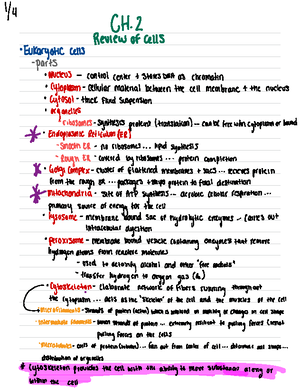 1/4
CH. 2
Review of Cells
• Eukaryotic cells
- parts
• Nucleus - control center + stores DNA as chromatin
• Cytoplasm - cellular material between the cell membrane + the nucleus
• Cytosol - thick fluid suspension
• organelles
ribosomes - synthesis proteins (translation) -- can be free w/in cytoplasm or bound
* Endoplasmic Reticulum (ER)
- Smooth ER - no ribosomes ... lipid synthesis
- Rough ER - covered by ribosomes ... protein completion
* Golgi Complex - cluster of flattened membranes + sacs ... receives protein
from the rough ER ... packages + ships protein to final destination
* mitochondria - site of ATP synthesis ... aerobic cellular respiration ...
primary source of energy for the cell
• lysosome - membrane bound sac of hydrolytic enzymes - carries out
intracellular digestion
• Peroxisome - membrane bound vesicle containing enzymes that remove
hydrogen atoms from
- used to detoxify alcohol and other "free radicals"
- transfer hydrogen to oxygen gas
• Cytoskeleton - elaborate network of fibers running throughout
the cytoplasm ... acts as the "skeleton" of the cell and the muscles of the cell
microfilaments - strands of protein (actin) which is involved in making of changes in cell shape
intermediate filaments - strands of protein ... extremely resistant to pulling forces (resist
pulling forces on the cell)
microtubules - coils of protein (tubulin) ... fan out from center of cell ... determine cell shape ...
distribution of organelles
* Cytoskeleton provides the cell with the ability to move substances along or
within the cell